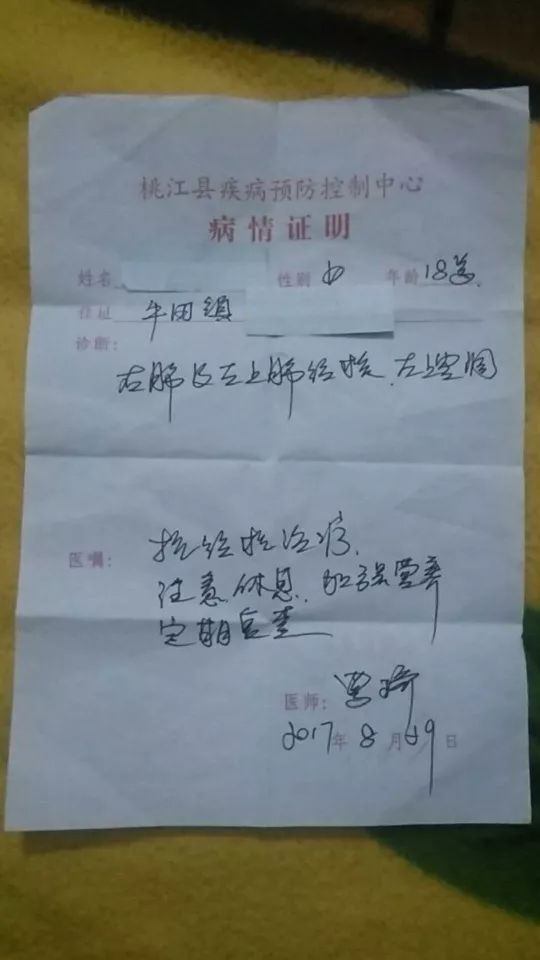 桃江县疾病预防控制中心
病情证明
姓名 性别 女 年龄 18岁
住址 牛田镇
诊断:
右肺及左上肺结核.左上空洞
医嘱: 抗结核治疗,
注意休息.加强营养
定期复查
医师:
2017年8月19日